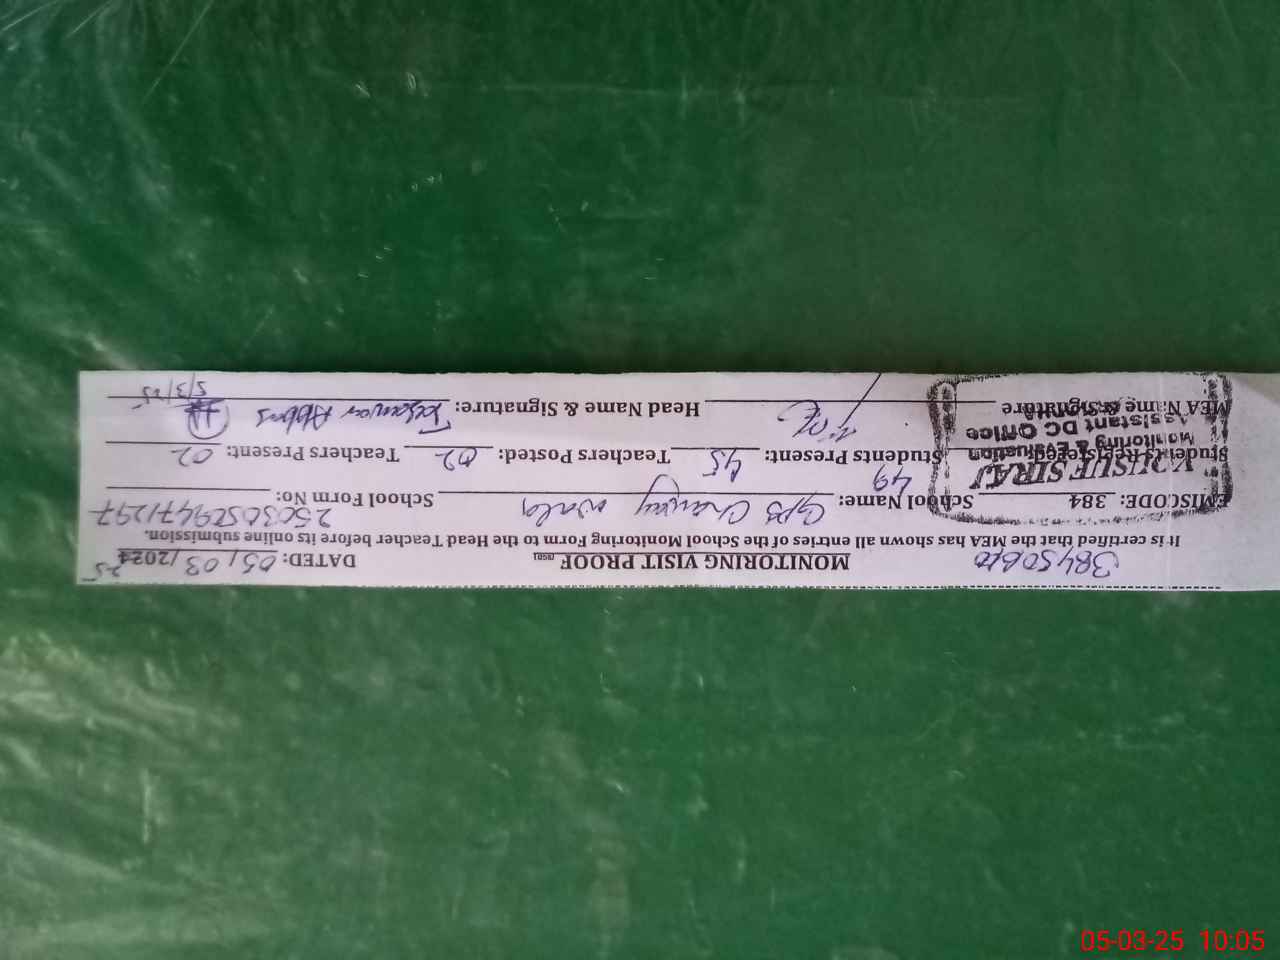 38450610 MONITORING VISIT PROOF DATED: 05/03/2024 25
It is certified that the MEA has shown all entries of the School Monitoring Form to the Head Teacher before its online submission.
EMISCODE: 384 School Name: GPS wala School Form No: 
Students Registered: 49 Students Present: 45 Teachers Posted: 02 Teachers Present: 02
MEA Name & Signature Head Name & Signature: Abbas 5/3/25
YOUSUF SIRAJ
Monitoring & Evaluation
Assistant DC Office
05-03-25 10:05